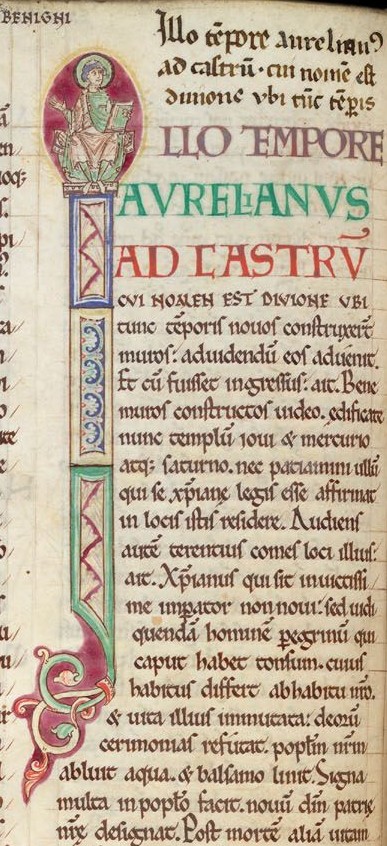 BENIGNI
Illo tēpore aurelianꝰ
ad castrū. cui nomē est
diuione vbi tūc tēp̄is
ILLO TEMPORE
AVRELIANVS
AD CASTRV̄
CVI NOMEN EST DIVIONE VBI
tunc tēporis nouos construxerāt
muros: aduidendū eos aduenit.
Et cū fuisset ingressus: ait. Bene
muros constructos uideo. edificate
nunc templū ioui & mercurio
atq; saturno. nec patiamini ullū
qui se xp̄iane legis esse affirmat
in locis istis residere. Audiens
autē terentius comes loci illius:
ait. Xp̄ianus qui sit inuictissi
me imꝑator non noui: sed uidi
quendā hominē ꝑegrinū qui
caput habet tonsum. cuius
habitus differt abhabitu nr̄o.
& uita illius immutata: deorū
cerimonias refutat. popl̄m nr̄m
abluit aqua. & balsamo linit. Signa
multa in popl̄o facit. nouū dm̄ patrie
nr̄e designat. Post mortē aliā uitam